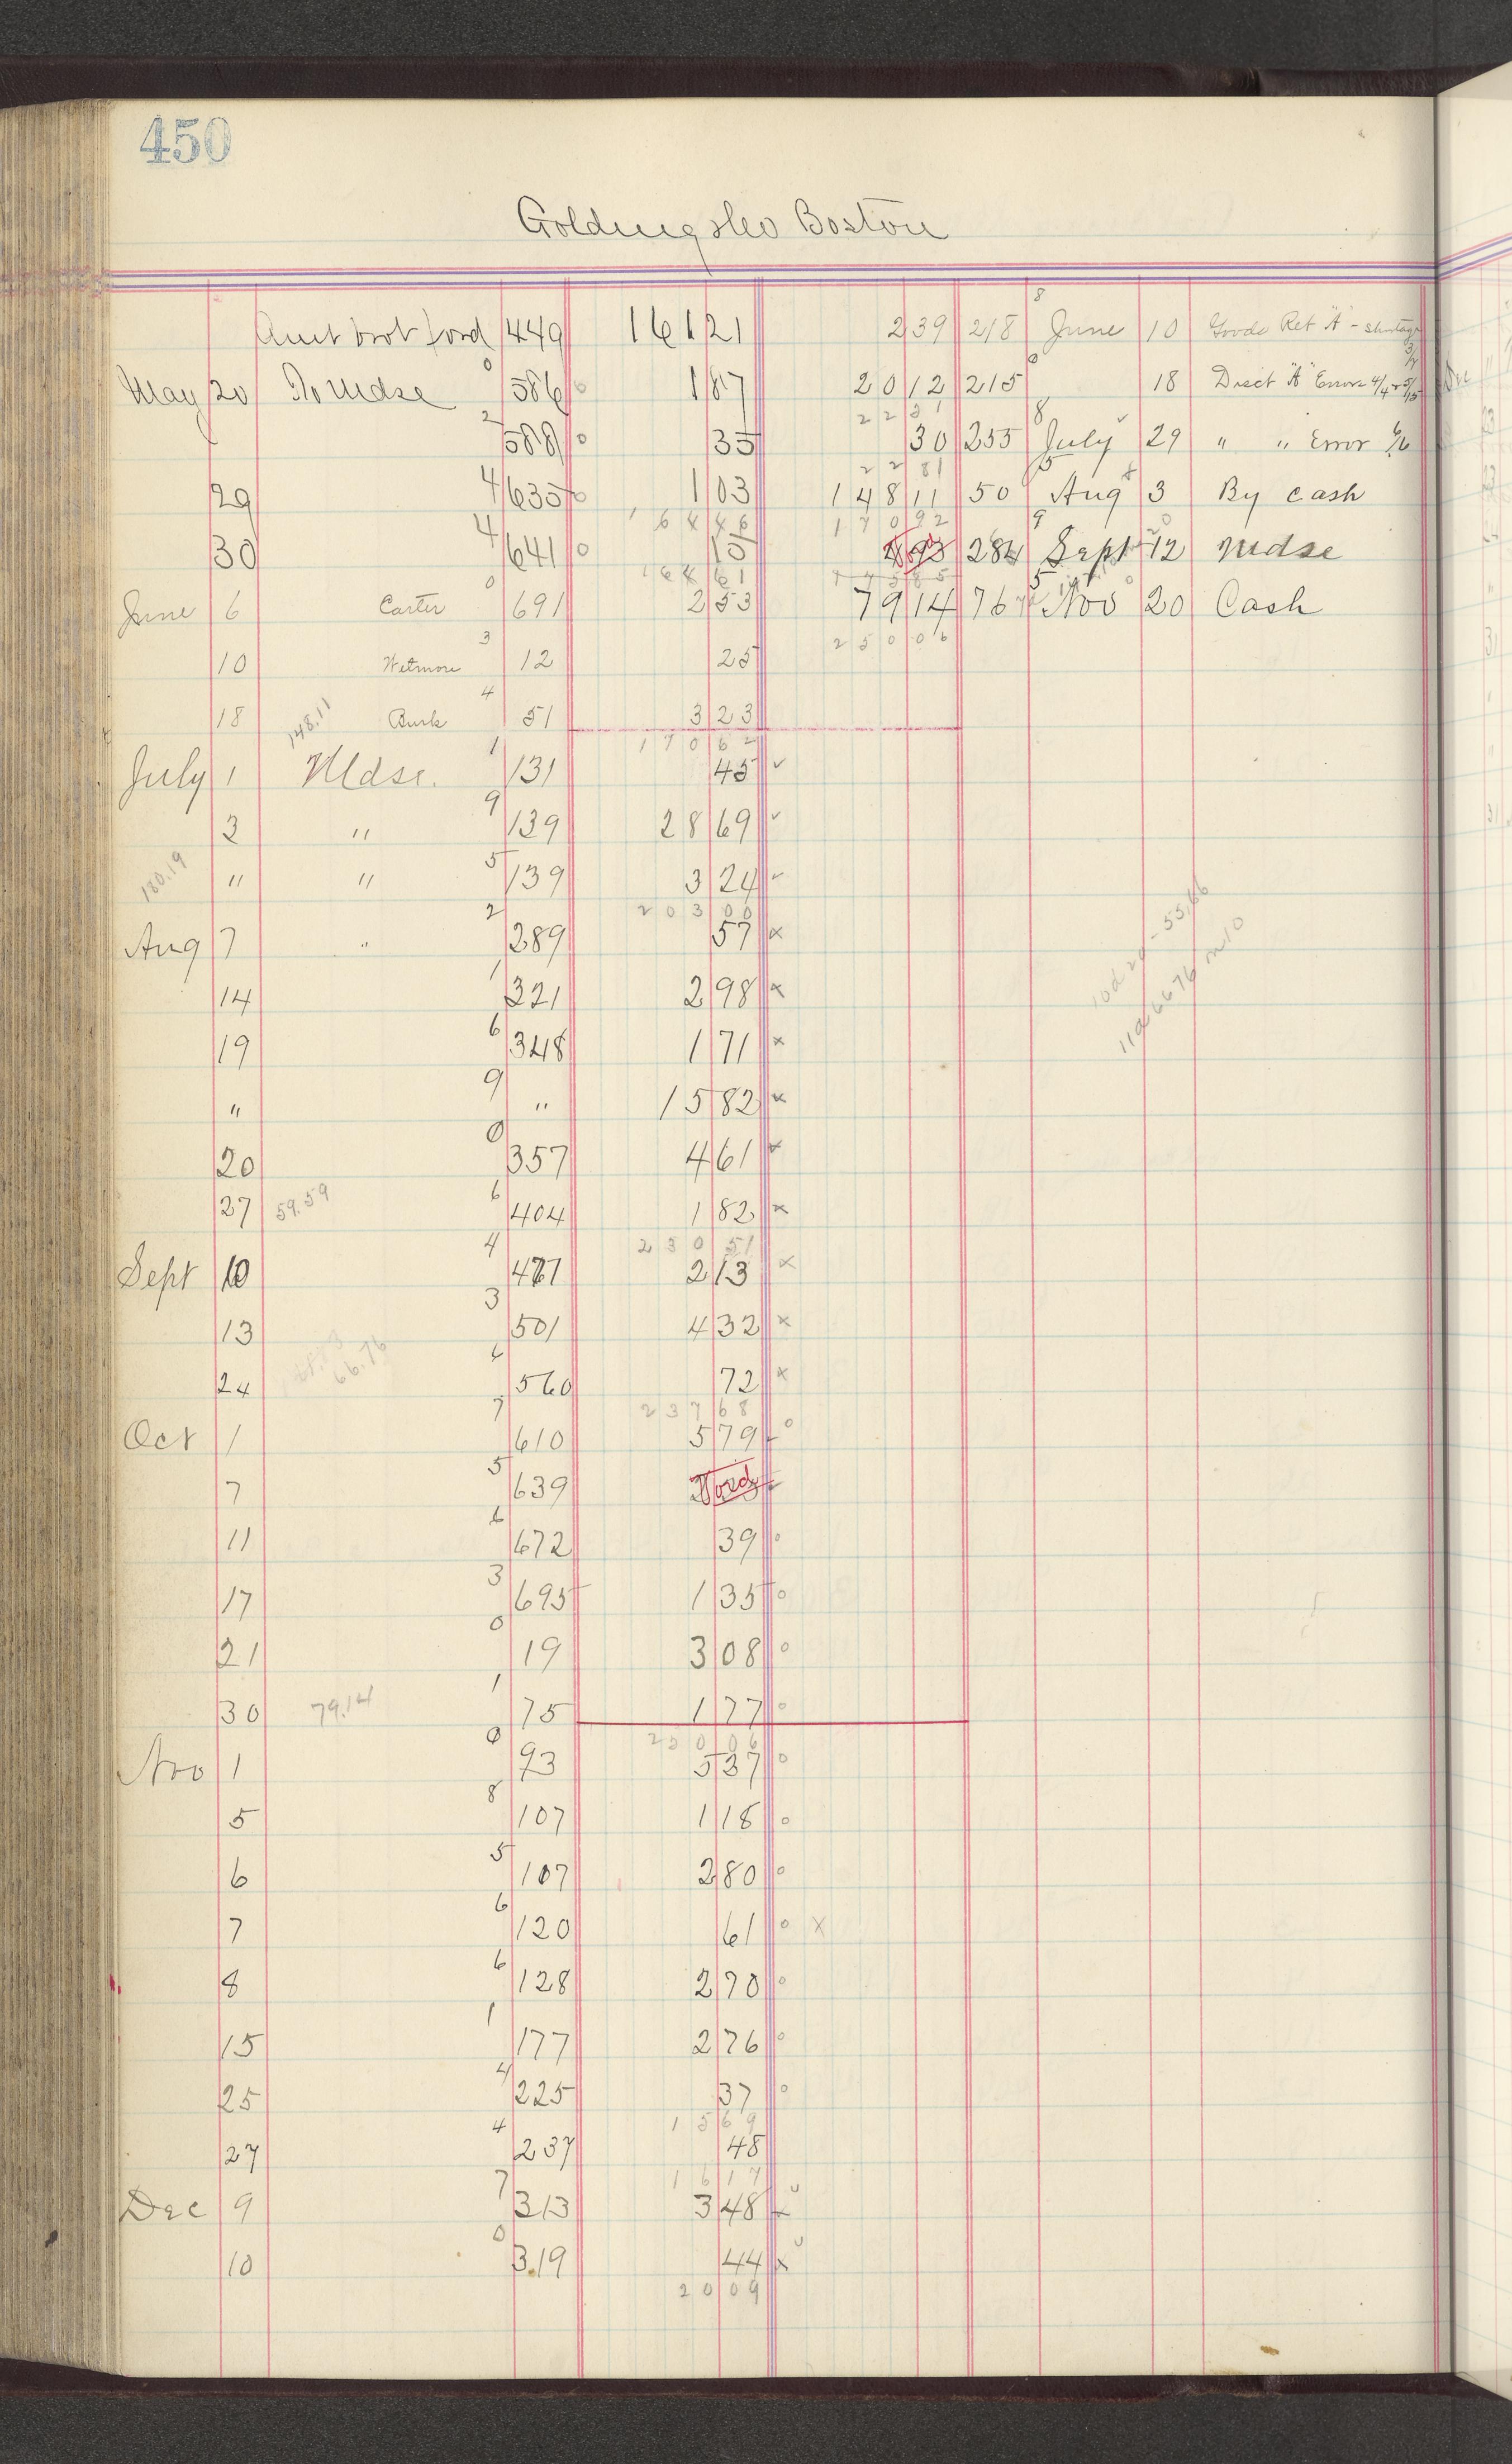 450
Golding & Co Boston
Amt brot ford 449 161 21 2 39 218 June 10 Goods Ret "A" - shortage 3/7
May 20 To Mdse 586 1 87 20 12 215 18 Disct "A" Error 4/4 + 5/15
22 51
588 35 30 255 July 29 " " Error 6/6
22 81
29 635 1 03 148 11 50 Aug 3 By Cash
164 46 170 92
30 641 10 284 Sept 12 Mdse
164 61
June 6 Carter 691 2 53 79 14 767 Nov 20 Cash
250 06
10 Wetmore 12 25
18 148.11 Burk 51 3 23
170 62
July 1 Mdse. 131 45
3 " 139 28 69
180.19 " " 139 3 24
203 00
Aug 7 " 289 57
14 321 2 98
19 348 1 71
" " 15 82
20 357 4 61
27 59.59 404 1 82
230 51
Sept 10 477 2 13
13 501 4 32
66.76
24 560 72
237 68
Oct 1 610 5 79
7 639
11 672 39
17 695 1 35
21 19 3 08
30 79.14 75 1 77
250 06
Nov 1 93 5 37
5 107 1 18
6 107 2 80
7 120 61 x
8 128 2 70
15 177 2 76
25 225 37
15 69
27 237 48
16 17
Dec 9 313 3 48
10 319 44
20 09